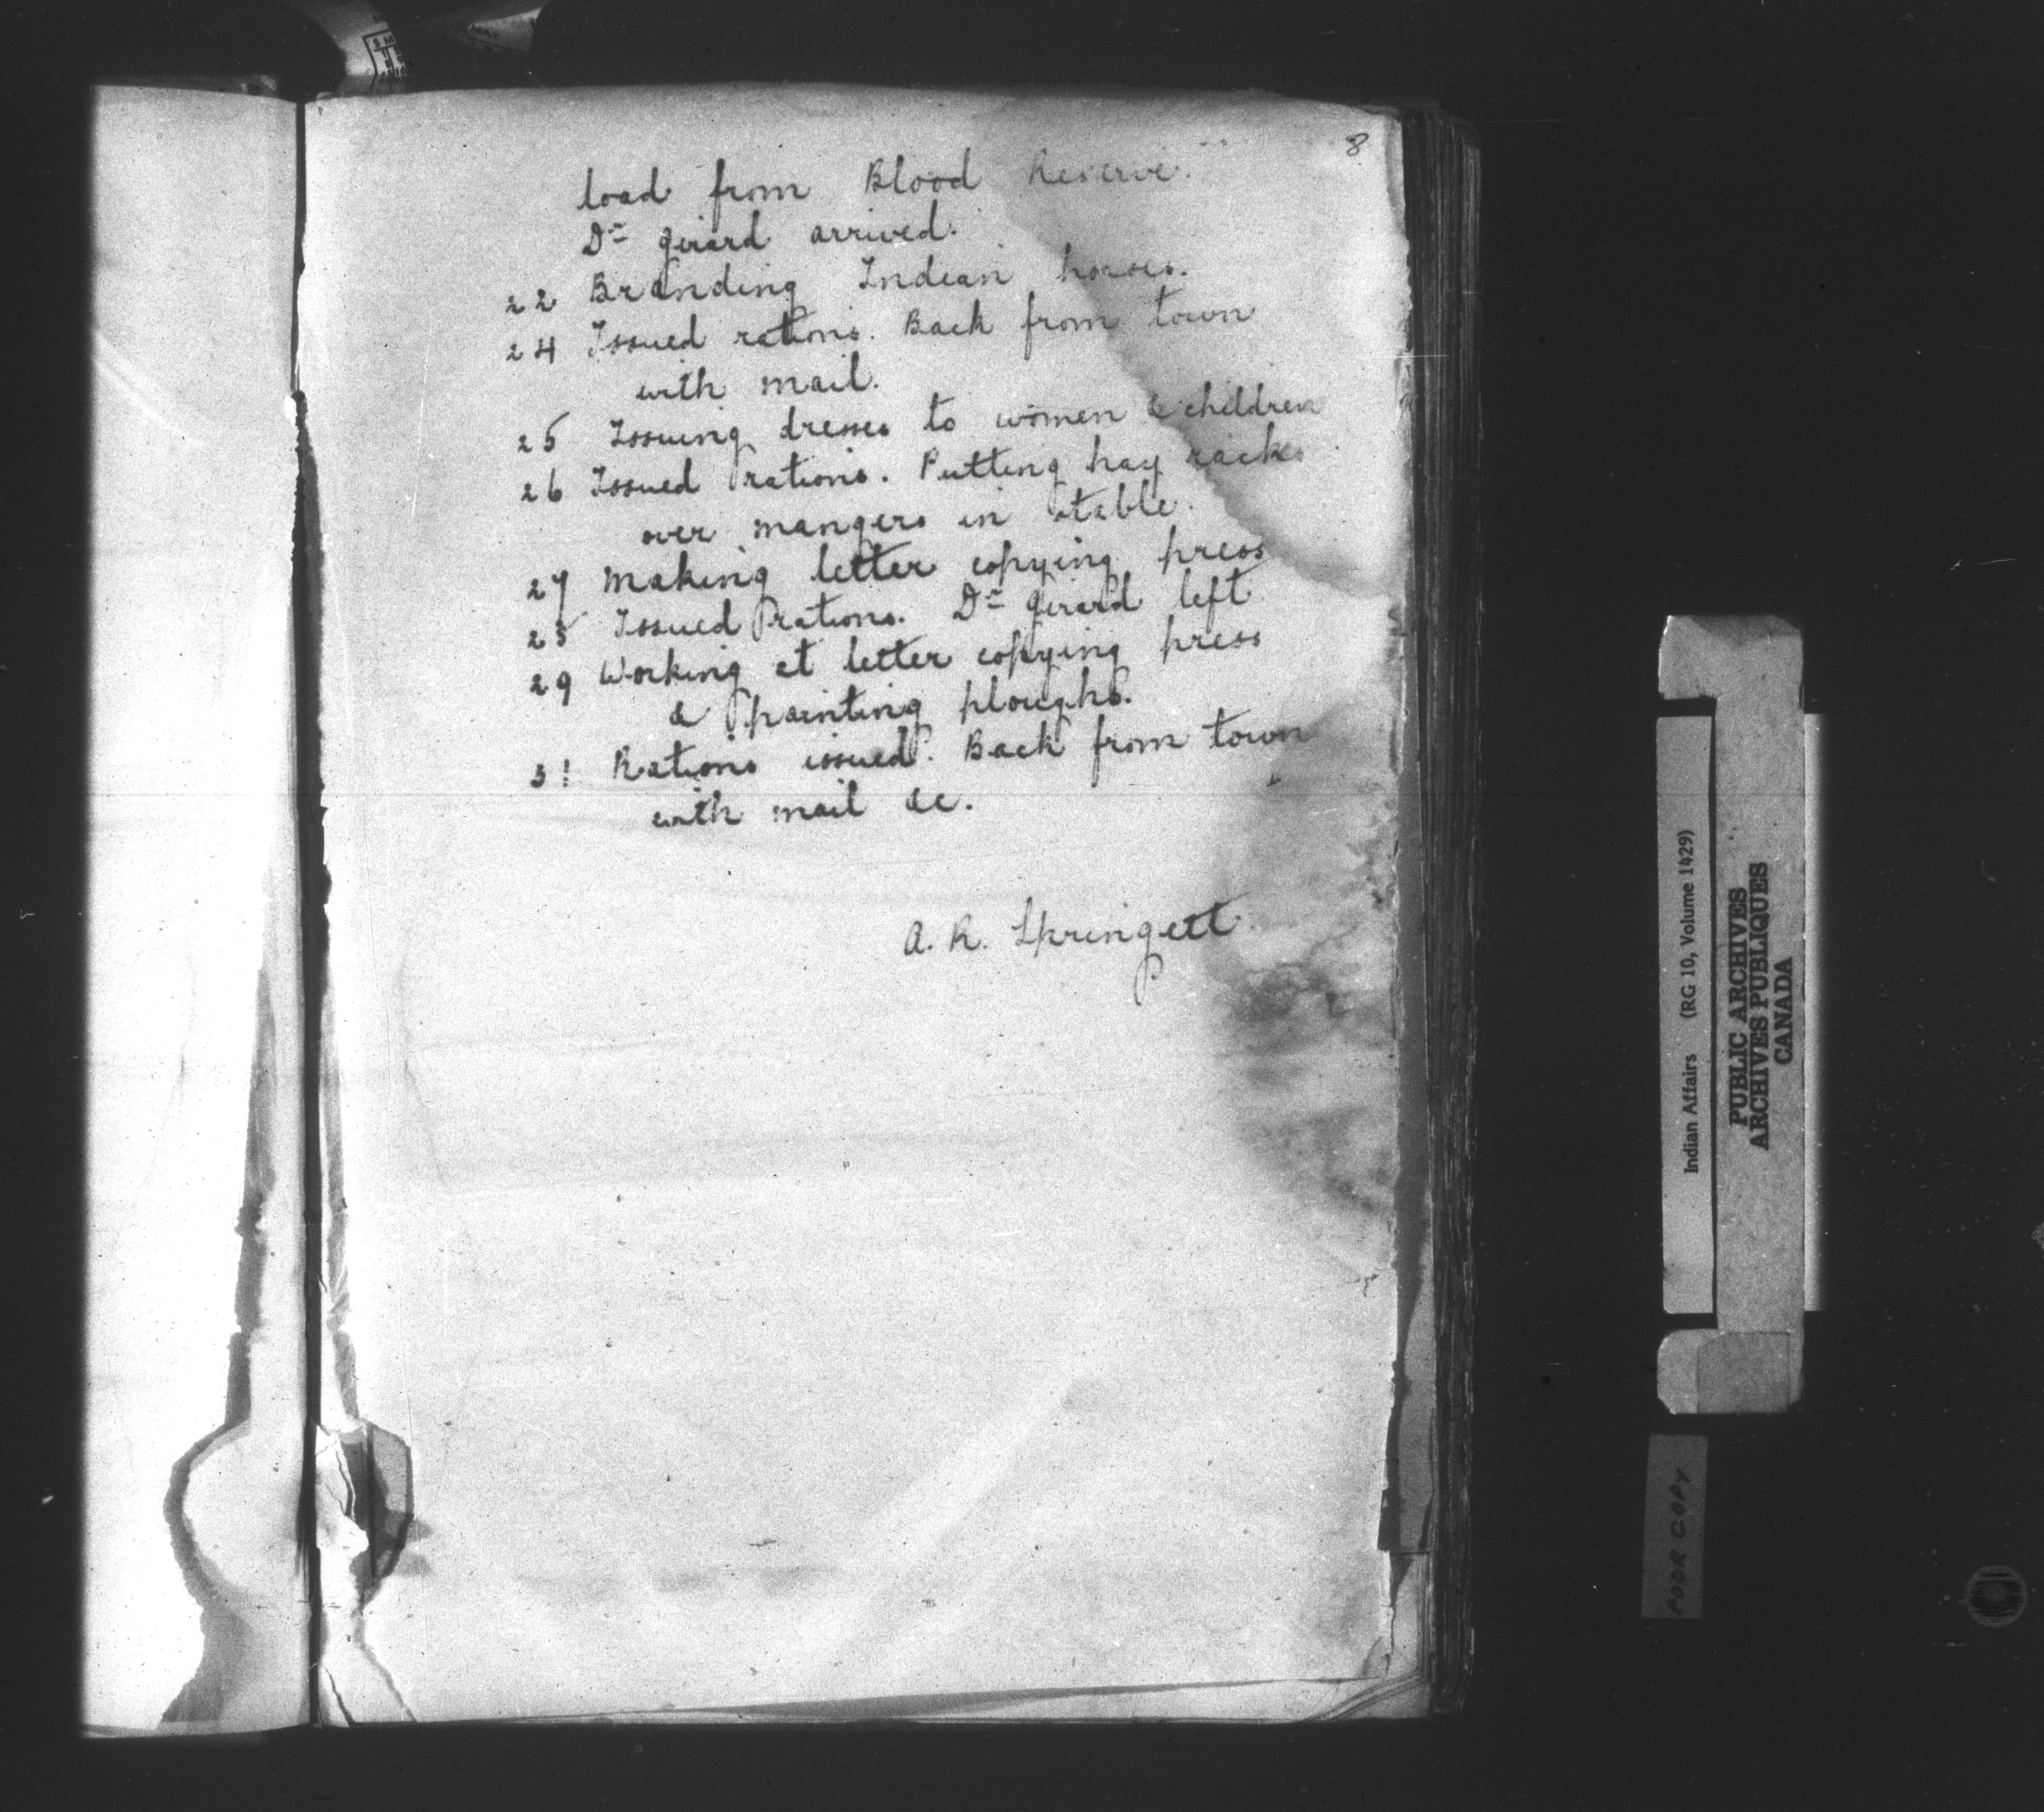 8
load from Blood Reserve.
Dr Girard arrived.
22 Branding Indian horses.
24 Issued rations. Back from town
with mail.
25 Issuing dresses to women & children
26 Issued rations. Putting hay racks
over mangers in stable.
27 Making letter copying press
28 Issued rations. Dr Girard left
29 Working at letter copying press
& painting ploughs.
31 Rations issued. Back from town
with mail &c.
A. R. Springett
Indian Affairs (RG 10, Volume 1429)
PUBLIC ARCHIVES
ARCHIVES PUBLIQUES
CANADA
POOR COPY